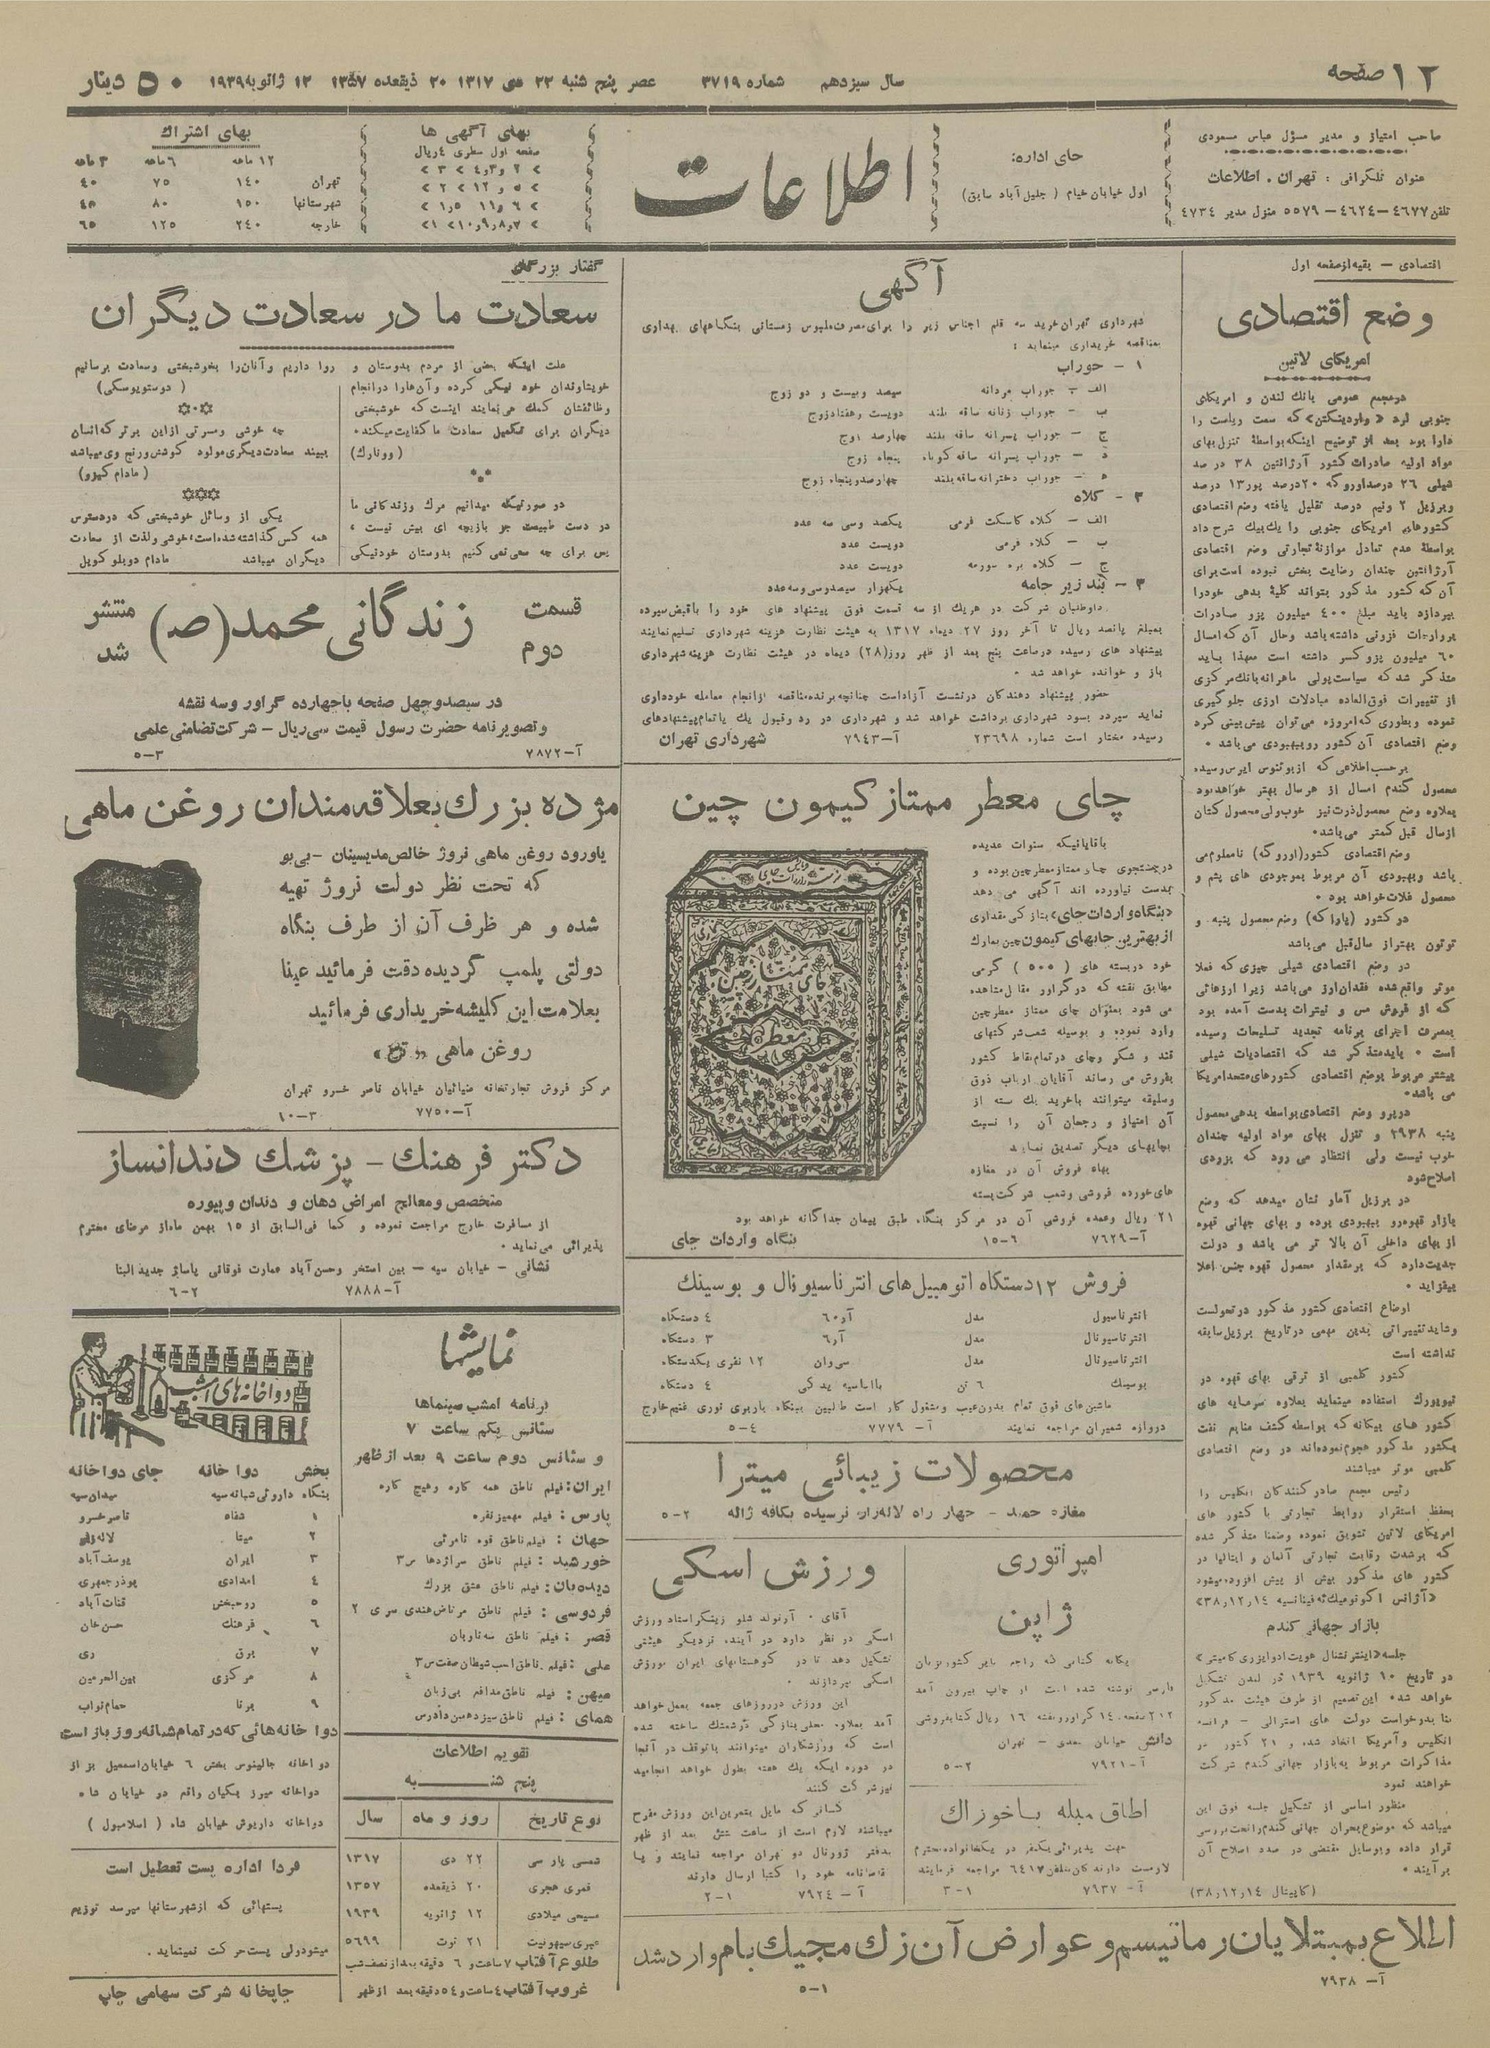 ۱۲ صفحه
سال سیزدهم شماره ۳۷۱۹ عصر پنج شنبه ۲۲ دی ۱۳۱۷ ۲۰ ذیقعده ۱۳۵۷ ۱۲ ژانویه ۱۹۳۹
۵۰ دینار
صاحب امتیاز و مدیر مسؤل عباس مسعودی
عنوان تلگرافی : تهران . اطلاعات
تلفن ۴۶۷۷-۴۶۲۴- ۵۵۷۹ منزل مدیر ۴۷۳۴
جای اداره:
اول خیابان خیام ( جلیل آباد سابق)
اطلاعات
بهای آگهی ها
صفحه اول سطری ۴ ریال
بهای اشتراك
۱۲ ماهه ۶ماهه ۳ ماهه
تهران ۱۴۰ ۷۵ ۴۰
شهرستانها ۱۵۰ ۸۰ ۴۵
خارجه ۲۴۰ ۱۲۵ ۶۵
اقتصادی – بقیه از صفحه اول
وضع اقتصادی
امریکای لاتین
درمجمع عمومی بانك لندن و امریکای
جنوبی لرد «واردینگتن» که سمت ریاست را
دارا بود بعد از توضیح اینکه بواسطهٔ تنزل بهای
مواد اولیه صادرات کشور آرژانتین ۳۸ در صد
شیلی ۲۶ درصد اوروگه ۲۰درصد پور۱۳ درصد
وبرزیل ۲ ونیم درصد تقلیل یافته وضع اقتصادی
کشورهای امریکای جنوبی را یك بیك شرح داد
بواسطهٔ عدم تعادل موازنهٔ تجارتی وضع اقتصادی
آرژانتین چندان رضایت بخش نبوده است برای
آن که کشور مذکور بتواند کلیهٔ بدهی خودرا
بپردازد باید مبلغ ۴۰۰ میلیون پزو صادرات
برواردات فزونی داشته باشد وحال آن که امسال
۶۰ میلیون پزو کسر داشته است معهذا باید
متذکر شد که سیاست پولی ماهرانه بانك مرکزی
از تغییرات فوق‌العاده مبادلات ارزی جلوگیری
نموده وبطوری که امروزه می‌توان پیش بینی کرد
وضع اقتصادی آن کشور رو ببهبودی می باشد ۰
برحسب اطلاعی که از بوئنوس ایرس رسیده
محصول گندم امسال از هرسال بهتر خواهد بود
بعلاوه وضع محصول ذرت نیز خوب ولی محصول کتان
ازسال قبل کمتر می باشد۰
وضع اقتصادی کشور(اوروگه) نامعلوم می
باشد وبهبودی آن مربوط بموجودی های پشم و
محصول غلات خواهد بود ۰
در کشور (پاراگه) وضع محصول پنبه و
توتون بهتر از سال قبل می باشد
در وضع اقتصادی شیلی چیزی که فعلا
موثر واقع شده فقدان ارز می باشد زیرا ارزهائی
که از فروش مس و نیترات بدست آمده بود
بمصرف اجرای برنامه تجدید تسلیحات رسیده
است ۰ باید متذکر شد که اقتصادیات شیلی
بیشتر مربوط بوضع اقتصادی کشورهای متحد امریکا
می باشد۰
درپرو وضع اقتصادی بواسطه بدهی محصول
پنبه ۲۹۳۸ و تنزل بهای مواد اولیه چندان
خوب نیست ولی انتظار می رود که بزودی
اصلاح شود
در برزیل آمار نشان میدهد که وضع
بازار قهوه رو ببهبودی بوده و بهای جهانی قهوه
از بهای داخلی آن بالا تر می باشد و دولت
جدیت دارد که برمقدار محصول قهوه جنس اعلا
بیفزاید ۰
اوضاع اقتصادی کشور مذکور در تحولست
وشاید تغییراتی بدین مهمی در تاریخ برزیل سابقه
نداشته است
کشور کلمبی از ترقی بهای قهوه در
نیویورك استفاده مینماید بعلاوه سرمایه های
کشور های بیگانه که بواسطه کشف منابع نفت
بکشور مذکور هجوم نموده‌اند در وضع اقتصادی
کلمبی موثر میباشند
رئیس مجمع صادر کنندگان انگلیس را
بحفظ استقرار روابط تجارتی با کشور های
امریکای لاتین تشویق نموده وضمنا متذکر شده
که برشدت رقابت تجارتی آلمان و ایتالیا در
کشور های مذکور بیش از پیش افزوده میشود
«آژانس اکونومیك ئه فینانسیه ۳۸٫۱۲٫۱۴»
بازار جهانی گندم
جلسه «اینترنشنال هویت ادوایزری کامیتر»
در تاریخ ۱۰ ژانویه ۱۹۳۹ در لندن تشکیل
خواهد شد۰ این تصمیم از طرف هیئت مذکور
بنا بدرخواست دولت های استرالی – فرانسه
انگلیس وآمریکا اتخاذ شده و ۲۱ کشور در
مذاکرات مربوط به بازار جهانی گندم شرکت
خواهند نمود
منظور اساسی از تشکیل جلسه فوق این
میباشد که موضوع بحران جهانی گندم را تحت بررسی
قرار داده وبوسایل مقتضی در صدد اصلاح آن
برآیند ۰
(کاپیتال ۳۸٫۱۲٫۱۴)
آگهی
شهرداری تهران خرید سه قلم اجناس زیر را برای مصرف ملبوس زمستانی بنگاههای بهداری
بمناقصه خریداری مینماید :
۱ - جوراب
الف – جوراب مردانه سیصد وبیست و دو زوج
ب – جوراب زنانه ساقه بلند دویست وهفتاد زوج
ج – جوراب پسرانه ساقه بلند چهارصد زوج
د – جوراب پسرانه ساقه کوتاه پنجاه زوج
ه – جوراب دخترانه ساقه بلند چهارصد و پنجاه زوج
۲ - کلاه
الف – کلاه کاسکت فرمی یکصد وسی سه عدد
ب – کلاه فرمی دویست عدد
ج – کلاه بره سورمه دویست عدد
۳ - بند زیر جامه یکهزار سیصد وسی وسه عدد
داوطلبان شرکت در هریك از سه قسمت فوق پیشنهاد های خود را باقبض سپرده
بمبلغ پانصد ریال تا آخر روز ۲۷ دیماه ۱۳۱۷ به هیئت نظارت هزینه شهرداری تسلیم نمایند
پیشنهاد های رسیده درساعت پنج بعد از ظهر روز(۲۸) دیماه در هیئت نظارت هزینه شهرداری
باز و خوانده خواهد شد ۰
حضور پیشنهاد دهندگان درنشست آزاداست چنانچه برنده مناقصه ازانجام معامله خودداری
نماید سپرده بسود شهرداری برداشت خواهد شد و شهرداری در رد وقبول یك یا تمام پیشنهادهای
رسیده مختار است شماره ۲۳۶۹۸ آ- ۷۹۴۳ شهرداری تهران
چای معطر ممتاز کیمون چین
بآقایانیکه سنوات عدیده
درجستجوی چای ممتاز معطر چین بوده و
بدست نیاورده اند آگهی می دهد
«بنگاه واردات چای» بتازگی مقداری
از بهترین چایهای کیمون چین بمارك
خود دربسته های (۵۰۰) گرمی
مطابق نقشه که در گراور مقابل مشاهده
می شود بعنوان چای ممتاز معطر چین
وارد نموده و بوسیله شعب شرکتهای
قند و شکر وچای در تمام نقاط کشور
بفروش می رساند آقایان ارباب ذوق
وسلیقه میتوانند با خرید یك بسته از
آن امتیاز و رجحان آن را نسبت
بچایهای دیگر تصدیق نمایند
بهاء فروش آن در مغازه
های خورده فروشی وشعب شرکت بسته
۲۱ ریال وعمده فروشی آن در مرکز بنگاه طبق پیمان جداگانه خواهد بود
آ- ۷۶۲۹ ۱۵-۶ بنگاه واردات چای
چای ممتاز چین
معطر
فروش ۱۲دستگاه اتومبیل‌های انترناسیونال و بوسینك
انترناسیونال مدل آر۶۰ ۴ دستگاه
انترناسیونال مدل آر۶ ۳ دستگاه
انترناسیونال مدل سی‌وان ۱۲ نفری یکدستگاه
بوسینك ۶ تن بااساسیه یدکی ۴ دستگاه
ماشین‌های فوق تمام بدون عیب ومشغول کار است طالبین ببنگاه باربری نوری غنیم خارج
دروازه شمیران مراجعه نمایند آ- ۷۷۷۹ ۵-۴
محصولات زیبائی میترا
مغازه حمید – چهار راه لاله‌زار نرسیده بکافه ژاله ۵-۲
امپراتوری
ژاپن
یگانه کتابی که راجع باین کشور بزبان
فارسی نوشته شده است از چاپ بیرون آمد
۲۱۲صفحه ۱۴ گراورونقشه ۱۶ ریال کتابفروشی
دانش خیابان سعدی – تهران
آ- ۷۹۲۱ ۵-۲
اطاق مبله باخوراك
جهت پذیرائی یکنفر در یکخانواده محترم
لازمست دارندگان بتلفن ۶۴۱۷ مراجعه فرمایند
آ- ۷۹۳۷ ۳-۱
ورزش اسکی
آقای ۰ آرنولد شلو زینگر استاد ورزش
اسکی در نظر دارد در آینده نزدیکی هیئتی
تشکیل دهد تا در کوهستانهای ایران بورزش
اسکی بپردازند ۰
این ورزش درروزهای جمعه بعمل خواهد
آمد بعلاوه محلی بتازگی درشمشك ساخته شده
است که ورزشکاران میتوانند باتوقف در آنجا
در دوره اینکه یك هفته بطول خواهد انجامید
نیز شرکت کنند
کسانی که مایل بتمرین این ورزش مفرح
میباشند لازم است از ساعت شش بعد از ظهر
بدفتر ژورنال دو تهران مراجعه نمایند و یا
تقاضانامه خود را کتبا ارسال دارند
آ- ۷۹۲۴ ۲-۱
اطلاع بمبتلایان رماتیسم و عوارض آن زك مجیك بام وارد شد
آ- ۷۹۳۸ ۵-۱
گفتار بزرگان
سعادت ما در سعادت دیگران
علت اینکه بعضی از مردم بدوستان و
خویشاوندان خود نیکی کرده و آن‌هارا درانجام
وظائفشان کمك می‌نمایند اینست که خوشبختی
دیگران برای تکمیل سعادت ما کفایت میکند۰
(وونارك)
در صورتیکه میدانیم مرك وزندگانی ما
در دست طبیعت جز بازیچه ای بیش نیست ،
پس برای چه سعی نمی کنیم بدوستان خودنیکی
روا داریم و آنان‌را بخوشبختی وسعادت برسانیم
(دوستویوسکی)
چه خوشی ومسرتی ازاین برتر که انسان
ببیند سعادت دیگری مولود کوشش ورنج وی میباشد
(مادام کیزو)
یکی از وسائل خوشبختی که دردسترس
همه کس گذاشته شده است، خوشی ولذت از سعادت
دیگران میباشد مادام دوبلو کویل
قسمت دوم
زندگانی محمد(ص)
منتشر شد
در سیصد وچهل صفحه باچهارده گراور وسه نقشه
وتصویر نامه حضرت رسول قیمت سی ریال – شرکت تضامنی علمی
آ-۷۸۷۲ ۵-۳
مژده بزرك بعلاقه مندان روغن ماهی
باورود روغن ماهی نروژ خالص مدیسینان – بی بو
که تحت نظر دولت نروژ تهیه
شده و هر ظرف آن از طرف بنگاه
دولتی پلمپ گردیده دقت فرمائید عینا
بعلامت این کلیشه خریداری فرمائید
مرکز فروش تجارتخانه ضیائیان خیابان ناصر خسرو تهران
آ-۷۷۵۰ ۱۰-۳
دکتر فرهنك – پزشك دندانساز
متخصص ومعالج امراض دهان و دندان و پیوره
از مسافرت خارج مراجعت نموده و کما فی‌السابق از ۱۵ بهمن ماه از مرضای محترم
پذیرائی می نماید ۰
نشانی – خیابان سپه – بین استخر وحسن آباد عمارت فوقانی پاساژ جدید البنا
آ-۷۸۸۸ ۶-۲
نمایشها
برنامه امشب سینماها
سئانس یکم ساعت ۷
و سئانس دوم ساعت ۹ بعد از ظهر
ایران: فیلم ناطق همه کاره وهیچ کاره
پارس : فیلم مهمیز نقره
جهان : فیلم ناطق قوه نامرئی
خورشید : فیلم ناطق سراژدها س۳
دیده‌بان: فیلم ناطق عشق بزرك
فردوسی : فیلم ناطق مرتاض هندی سری ۲
قصر : فیلم ناطق سه ناربان
ملی : فیلم ناطق اسب شیطان صفت س۳
میهن : فیلم ناطق مدافع بی زبان
همای : فیلم ناطق سیزدهمین دادرس
تقویم اطلاعات
پنج شنبه
نوع تاریخ روز و ماه سال
شمسی پارسی ۲۲ دی ۱۳۱۷
قمری هجری ۲۰ ذیقعده ۱۳۵۷
مسیحی میلادی ۱۲ ژانویه ۱۹۳۹
۲۱ توت ۵۶۹۹
طلوع آفتاب ۷ ساعت و ۶ دقیقه بعد از نصف شب
غروب آفتاب ۴ ساعت و ۵۴ دقیقه بعد از ظهر
دواخانه‌های امشب
بخش دوا خانه جای دواخانه
بنگاه داروئی شبانه سپه میدان سپه
۱ شفاء ناصر خسرو
۲ مینا لاله‌زار
۳ ایران یوسف آباد
۴ امدادی بوذرجمهری
۵ روحبخش قنات آباد
۶ فرهنك حسن خان
۷ برق ری
۸ مرکزی بین الحرمین
۹ برنا حمام نواب
دوا خانه هائی که در تمام شبانه روز باز است
دواخانه جالینوس بخش ۶ خیابان اسمعیل بزاز
دواخانه میرز یکیان واقع در خیابان شاه
دواخانه داریوش خیابان شاه ( اسلامبول )
فردا اداره پست تعطیل است
پستهائی که ازشهرستانها میرسد توزیع
میشود ولی پست حرکت نمینماید .
چاپخانه شرکت سهامی چاپ